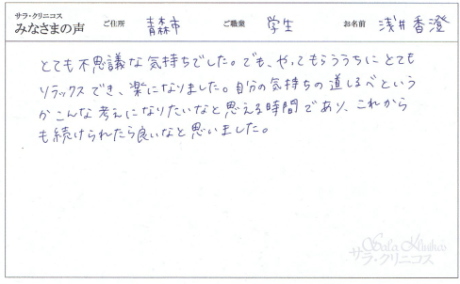 サラ・クリニコス
みなさまの声 ご住所 青森市 ご職業 学生 お名前 浅井香澄
とても不思議な気持ちでした。でも、やってもらううちにとても
リラックスでき、楽になりました。自分の気持ちの道しるべという
かこんな考えになりたいなと思える時間であり、これから
も続けられたら良いなと思いました。
Sala Klinikos
サラ・クリニコス